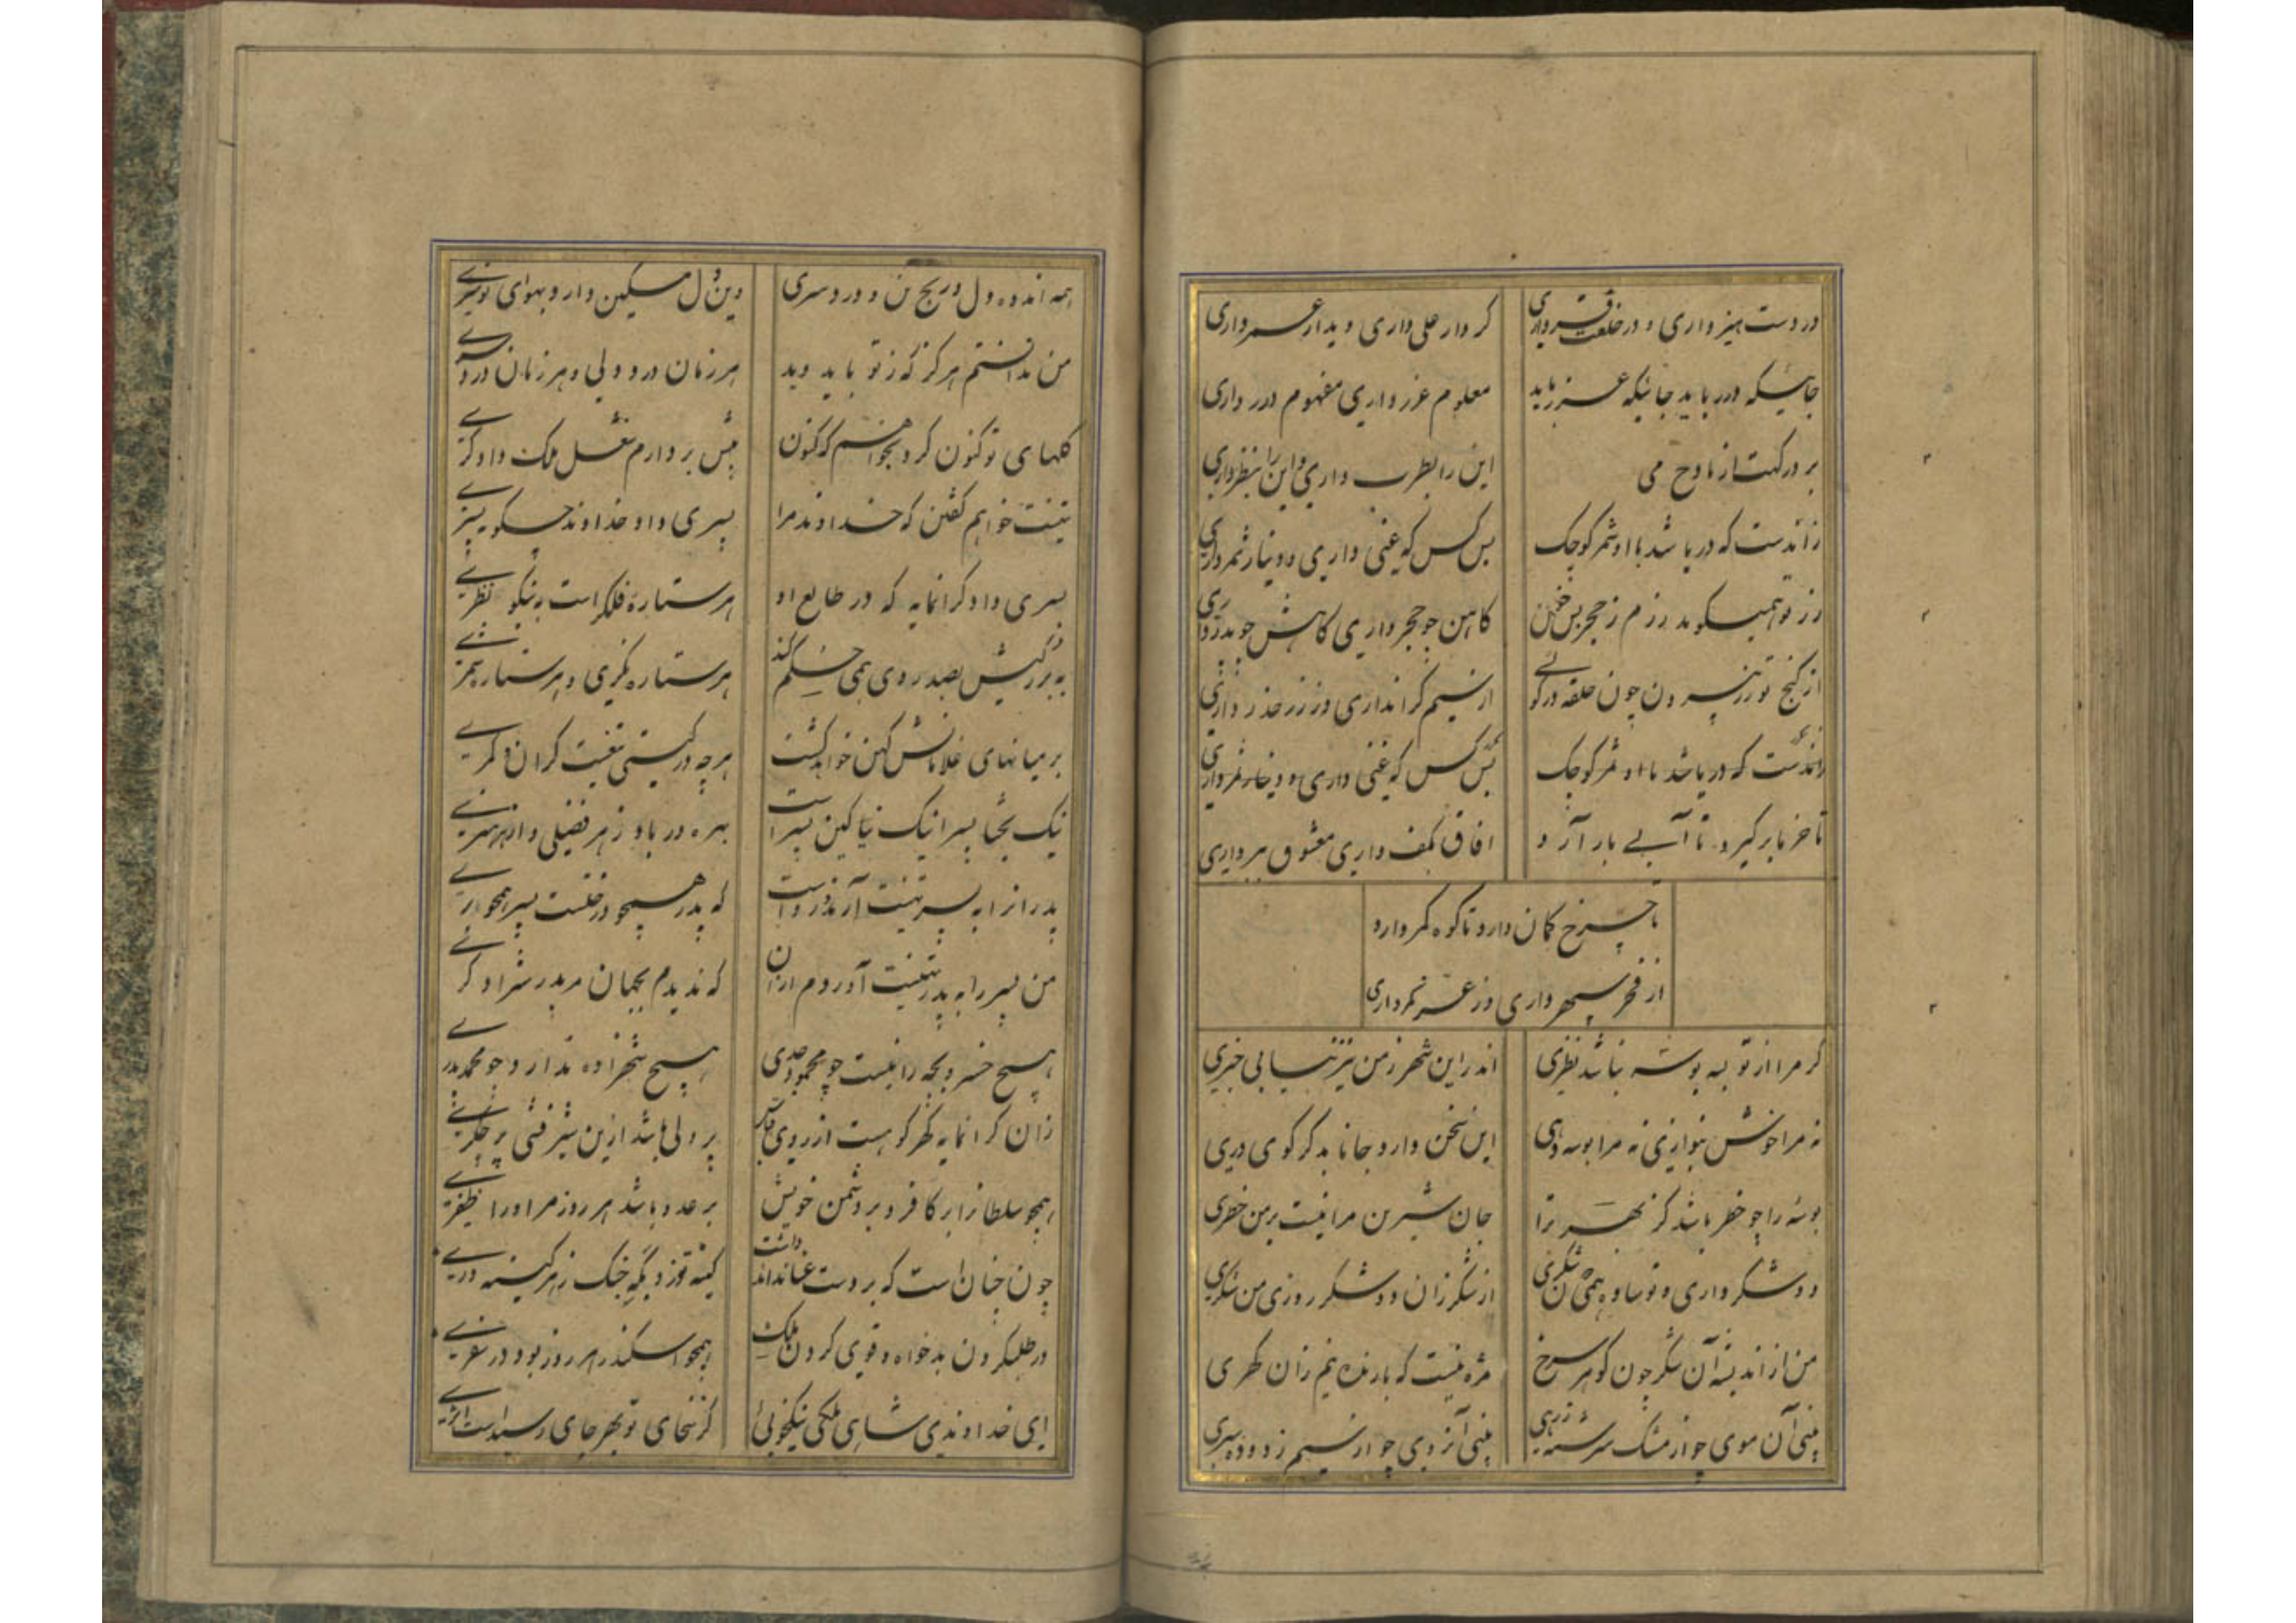 در دست هنر داری و در خلعت فر داری کردار علی داری و دیدار عمر داری
جائیکه درر باید جائیکه غرر باید معلوم غرر داری مفهوم درر داری
بر درگهت از مادح می این را بطرب داری و این را بنظر داری
زانست که دریا شد با او شمر کوچک بس کس که غنی داری و دینار شمر داری
رز تو همیگوید رزم ز حجر بس کاهن چو حجر داری کاهش چو مدر داری
از گنج تو زر بیرون چون حلقه در گوئی از سیم گرانداری وز زر حذر داری
زانست که دریا شد با او شمر کوچک بس کس که غنی داری و دینار شمر داری
تا خز ببر گیرد تا آبی بار آرد افاق بکف داری معشوق ببر داری
تا چرخ کمان دارد تا کوه کمر دارد
از فخر سپهر داری وز عز کمر داری
گر مرا از تو به بوسه نباشد نظری اندر این شهر ز من نیز نیابی خبری
نه مرا خوش بنوازی نه مرا بوسه دهی این سخن دارد جانا بدگر کوی دری
بوسه را چو خطر باشد کز بهر ترا جان شیرین مرا نیست بر من خطری
دو شکر داری و تو ساده همی شکری از شکر زان دو شکر روزی من شکری
من از اندیشه آن شکر چون گوهر سرخ مژه نیست که بارنده نیم زان گهری
بینی آن موی چو از مشک سرشته زرهی بینی آنروی چو از سیم زدوده سپری
همه اندوه دل و رنج تن و درد سری وین دل مسکین دارد بهوای تو سری
من ندانستم هرگز که ز تو باید دید هر زمان درد دلی و هر زمان درد سری
گلهای تو کنون کرد بخواهم که کنون پیش بر دارم شغل ملک دادگری
تهنیت خواهم گفتن که خداوند مرا پسری داد خداوند چگونه پسری
پسری داد گرانمایه که در طالع او هر ستاره فلکی راست به نیکو نظری
به بزرگیش بصد روی همی حکم کند هر ستاره نگری و هر ستاره شمری
بر میانهای غلامانش کهن خواهد گشت هر چه در گیتی تیغیست گران و کمری
نیک بختا پسرا نیک نیا کین پسر است بهره ور باد ز هر فضلی و از هر هنری
پدرانرا به پسر تهنیت آرند و رواست که پدر همچو درختست پسر همچو بری
من پسر را به پدر تهنیت آوردم از آن که ندیدم بجهان مر پدرش را دگری
هیچ خسرو بچه را نیست چو محمود جدی هیچ شهزاده ندارد چو محمد پدری
زان گرانمایه گهر کو هست از روی قیاس پر دلی باشد ازین شیر فشی پر جگری
همچو سلطانرا بر کافر و بر دشمن خویش بر عدو باشد هر روز مر او را ظفری
چون چنان است که بر دست عنان داند داشت کینه توزد بگه جنگ ز هر کینه وری
در طلب کردن بدخواه و قوی کردن ملک همچو اسکندر هر روز بود در سفری
ای خداوندی شاهی ملکی نیکخوئی کز سخای تو بهر جای رسیده است اثری